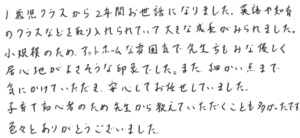 1歳児クラスから2年間お世話になりました。英語や知育
のクラスなどを取り入れられていて大きな成長がみられました。
小規模のため、アットホームな雰囲気で先生方もみな優しく
居心地がよさそうな印象でした。また、細かい点まで
気にかけていただき、安心してお任せしていました。
子育て初心者のため先生から教えていただくことも多かったです
色々とありがとうございました。